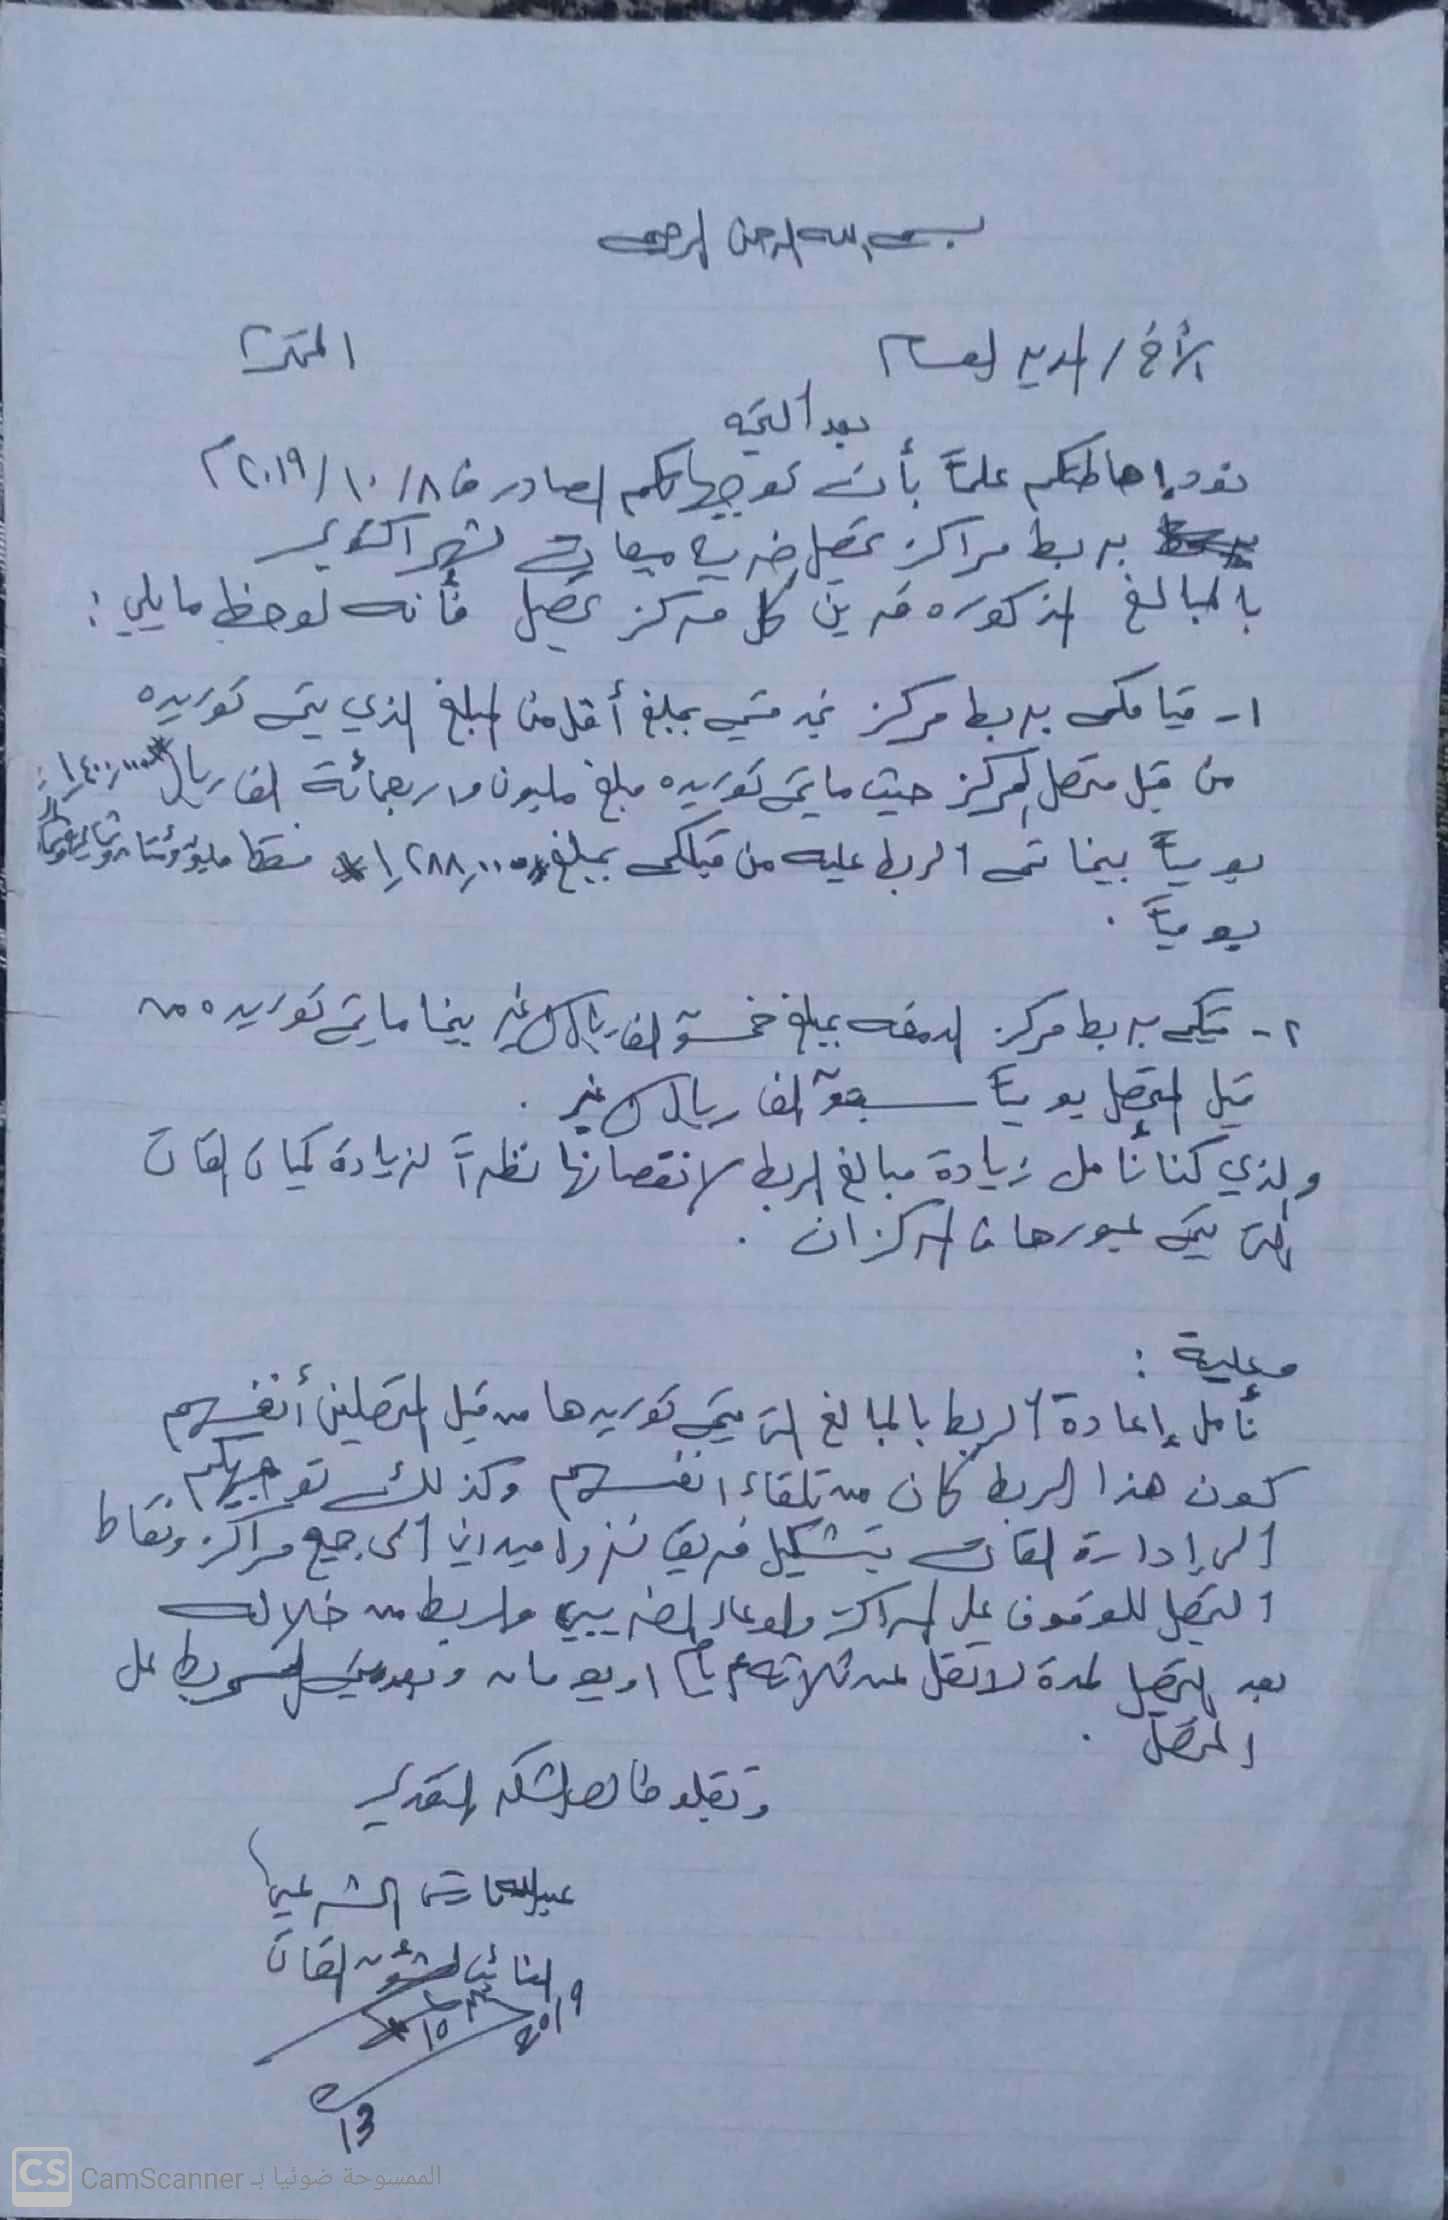 بسم الله الرحمن الرحيم
الأخ / المدير العام المحترم
بعد التحية
نود إحاطتكم علماً بأن توجيهاتكم الصادرة في ٨/١٠/٢٠١٩م
بربط مراكز تحصيل ضريبة مبيعات لشهر اكتوبر
بالمبالغ المذكوره قرين كل مركز تحصيل فأنه لوحظ مايلي :
١- قيامكم بربط مركز بمبلغ أقل من المبلغ الذي يتم توريده
من قبل متحصل المركز حيث مايتم توريده مبلغ مليون واربعمائة الف ريال ١٫٤٠٠٫٠٠٠
يومياً بينما تم الربط عليه من قبلكم بمبلغ ١٫٢٨٨٫٠٠٠ فقط
يومياً .
٢- قمتم بربط مركز الدمغه بمبلغ خمسون الف ريال لاغير بينما مايتم توريده من
قبل المتحصل يومياً سبعون الف ريال لاغير .
والذي كنا نأمل زيادة مبالغ الربط لانقصانها نظراً لزيادة كميات القات
التي يتم عبورها من المركزان .
وعليه :
نأمل إعادة الربط بالمبالغ التي يتم توريدها من قبل المتحصلين أنفسهم
كون هذا الربط كان من تلقاء انفسهم وكذلك توجيهكم
الى إدارة القات بتشكيل فريق نزول ميداني الى جميع مراكز ونقاط
التحصيل للوقوف على المراكز والوعاء الضريبي والربط من خلاله
بعد التحصيل لمدة لاتقل عن ثلاثة أيام او يومان وبعدها يتم ربط على
المتحصل .
وتقبلو خالص الشكر والتقدير
عبدالله الشرعبي
النائب لشؤون القات
2019
10
13
الممسوحة ضوئيا بـ CamScanner
CS